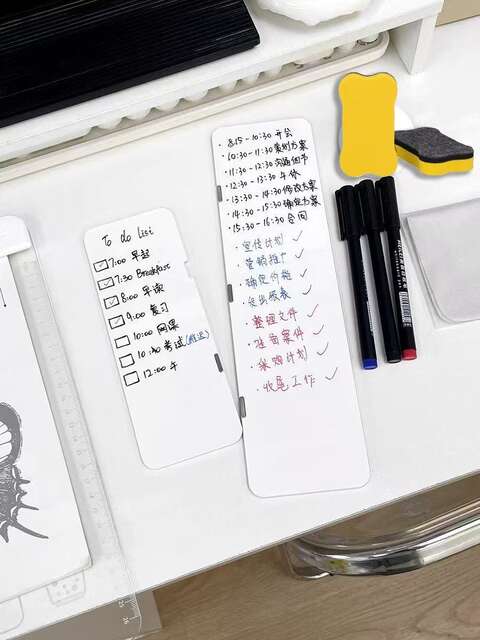 To do list
7:00 早起
7:30 Breakfast
8:00 早课
9:00 复习
10:00 网课
10:30 考试(推迟)
12:00 午
· 8:15-10:30 开会
· 10:30-11:30 策划方案
· 11:30-12:30 沟通细节
· 12:30-13:30 午休
· 13:30-14:30 修改方案
· 14:30-15:30 确定方案
· 15:30-16:30 合同
· 宣传计划 ✓
· 营销推广 ✓
· 确定价格 ✓
· 支出报表 ✓
· 整理文件 ✓
· 准备案件 ✓
· 采购计划 ✓
· 收尾工作 ✓